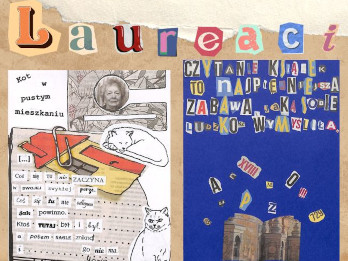 Laureaci
Kot
w
pustym
mieszkaniu
[...]
Coś się tu nie ZACZYNA
w swojej zwykłej porze.
Coś się tu nie odbywa
jak powinno.
Ktoś TUTAJ był i był,
a potem nagle zniknął
i nie ma
CZYTANIE KSIĄŻEK
TO NAJPIĘKNIEJSZA
ZABAWA, JAKĄ SOBIE
LUDZKOŚĆ WYMYŚLIŁA.